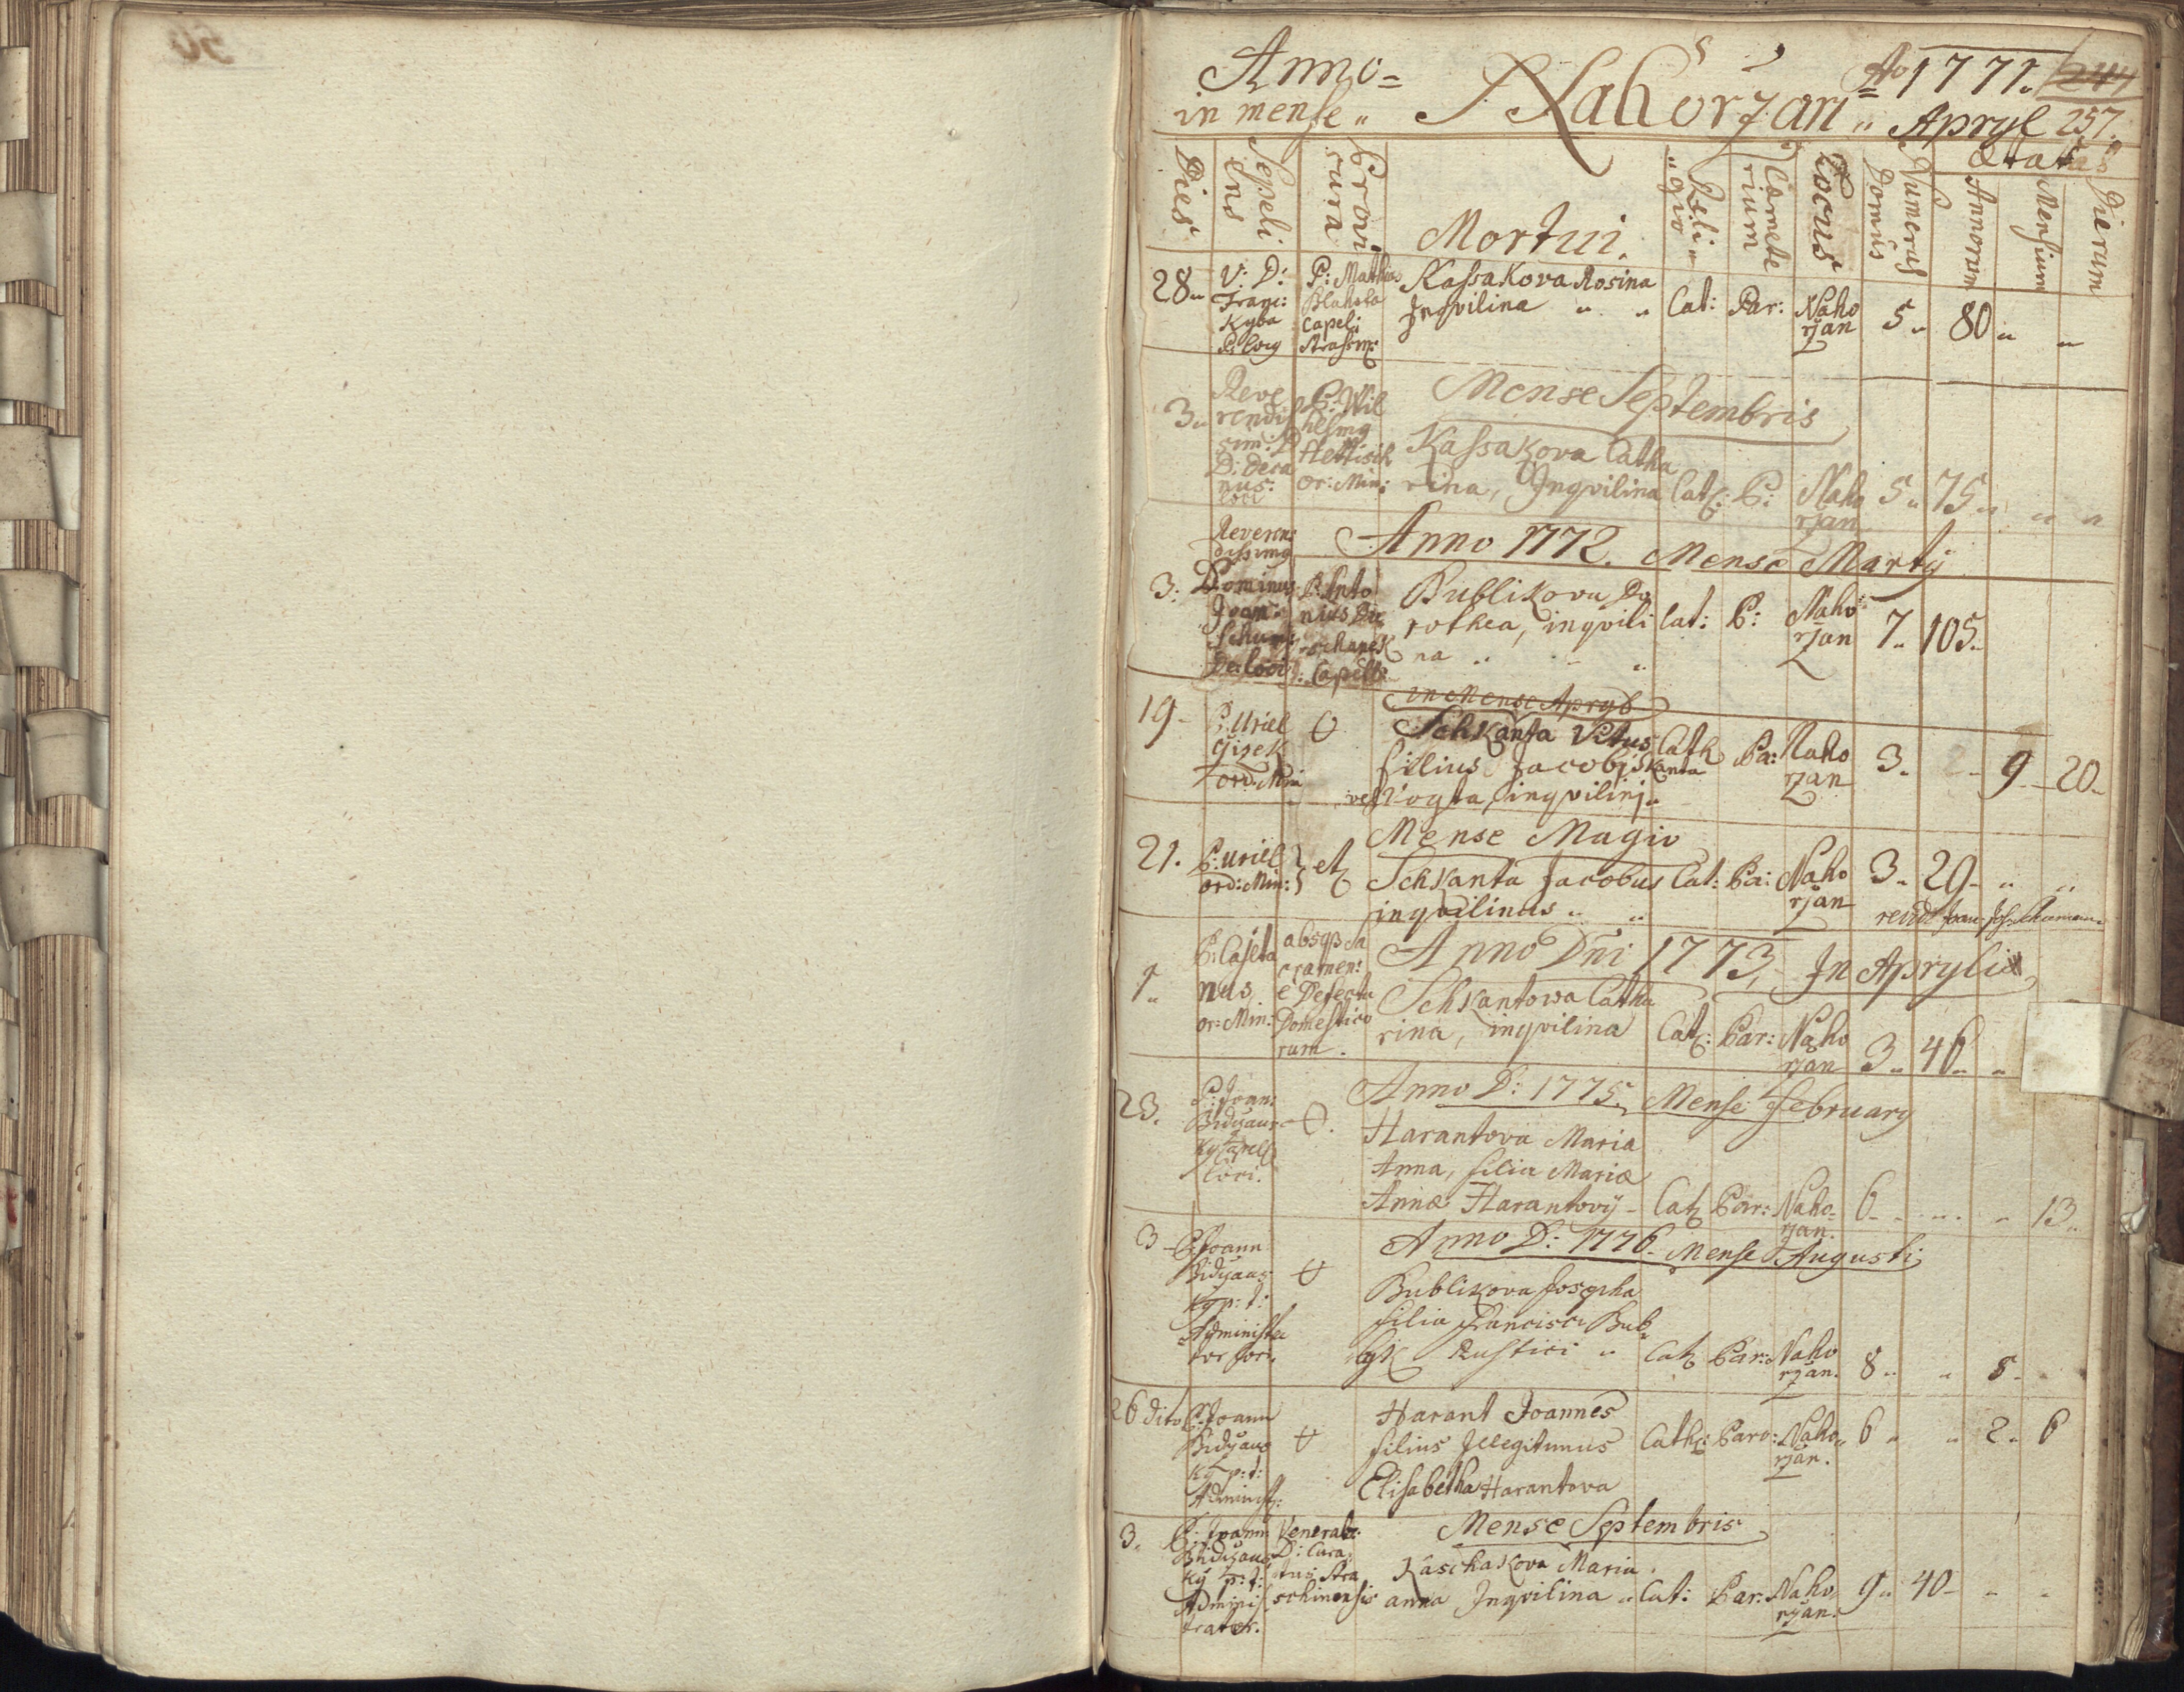 Anno =
in mense „ Nahorzan „
Ao 1771.
Apryl 257.
Dies
Sepeli
ens
Provi
sura
Mortui.
Reli
gio
Cæmete
rium
Locus
Numerus
Domus
Ætatis
Annorum
Mensium
Dierum
28 „ V: D:
Franc:
Kyba
P: Mathias
Blahola
Capel:
Kassakova Rosina
Inqvilina „ „ Cat: Par: Naho
rzan 5 „ 80 „ „
Mense Septembris
3 „ Reve
rendis
sim: D
D: Deca
nus:
loci
P: Wil
helmg
Hettisch
or: Min:
Kassakova Catha
rina, Inqvilina Cat: P: Naho
rzan 5 „ 75 „ „ „
Anno 1772. Mense Martÿ
3: Reveren
dissimg
Dominus
Joan:
Schum:
De loci
P: Anto
nius Du
schanek
Capell:
Bublikova Do
rothea, inqvili
na „ „ Cat: P: Naho
rzan 7 „ 105 „
in Mense Apryl
19 - P: Uriel
Gisek
ord: Min
Schkanta Vitus
filius Jacobj Skanta
vel Vogta, inqvilinj „ Cath Pa: Naho
rzan 3 „ - 9 - 20 „
Mense Magio
21. P: Uriel
ord: Min: et
Schkanta Jacobus
inqvilinus „ „ Cat: Pa: Naho
rzan 3 „ 29 - „ „
Anno Dni 1773, In Aprylis
1 „ P: Cajeta
nus
or: Min:
absq sa
cramen:
é Defectu
Domestico
rum.
Schkantowa Catha
rina, inqvilina Cat: Par: Naho
rzan 3 „ 46 „ „
Anno D: 1775. Mense February
23. P: Joan:
Bidziaus
ky Capell
loci.
Harantova Maria
Anna, filia Mariæ
Annæ Harantovÿ - Cat Par: Naho
rzan. 6 - „ „ 13 „
Anno D: 1776. Mense Augusti
3 - P: Joann
Bidziaus
ky p: t:
Administra
tor loci.
Bublikova Josepha
filia Francisci Bub
lyk Rustici „ Cat Par: Naho
rzan. 8 „ „ 5 -
26 dito P: Joann
Bidziaus
ky p: t:
Administ:
Harant Joannes
filius Illegitimus
Elisabetha Harantova Cath: Paro: Naho
rzan. 6 „ „ 2 „ 6
Mense Septembris
3. P: Joann
Bidziaus
ky p: t:
Adminis
trator.
Venerab:
D: Cura
tus Stra
schinensis
Kaschakova Maria
anna Inqvilina „ Cat: Par: Naho
rzan. 9 „ 40 - „ „